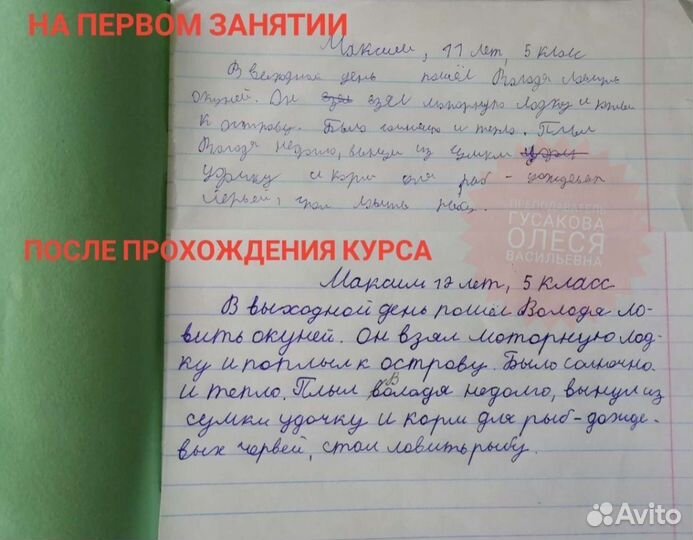 НА ПЕРВОМ ЗАНЯТИИ
Максим, 11 лет, 5 класс
В выходной день пошёл Володя ловить
окуней. Он взял моторную лодку и
к острову. Было солнечно и тепло. Плыл
Володя недолго, вынул из сумки
удочку и корм для рыб - дождевых
червей, стал ловить рыбу.
ПРЕПОДАВАТЕЛЬ
ГУСАКОВА
ОЛЕСЯ
ВАСИЛЬЕВНА
ПОСЛЕ ПРОХОЖДЕНИЯ КУРСА
Максим 12 лет, 5 класс
В выходной день пошёл Володя ло-
вить окуней. Он взял моторную лод-
ку и поплыл к острову. Было солнечно
и тепло. Плыл Володя недолго, вынул из
сумки удочку и корм для рыб - дожде-
вых червей, стал ловить рыбу.
Avito